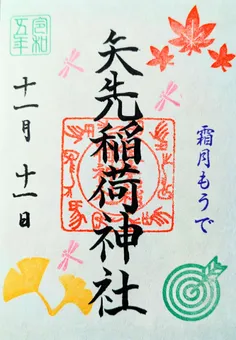 霜月もうで
矢先稲荷神社
令和
五年
十一月 十一日